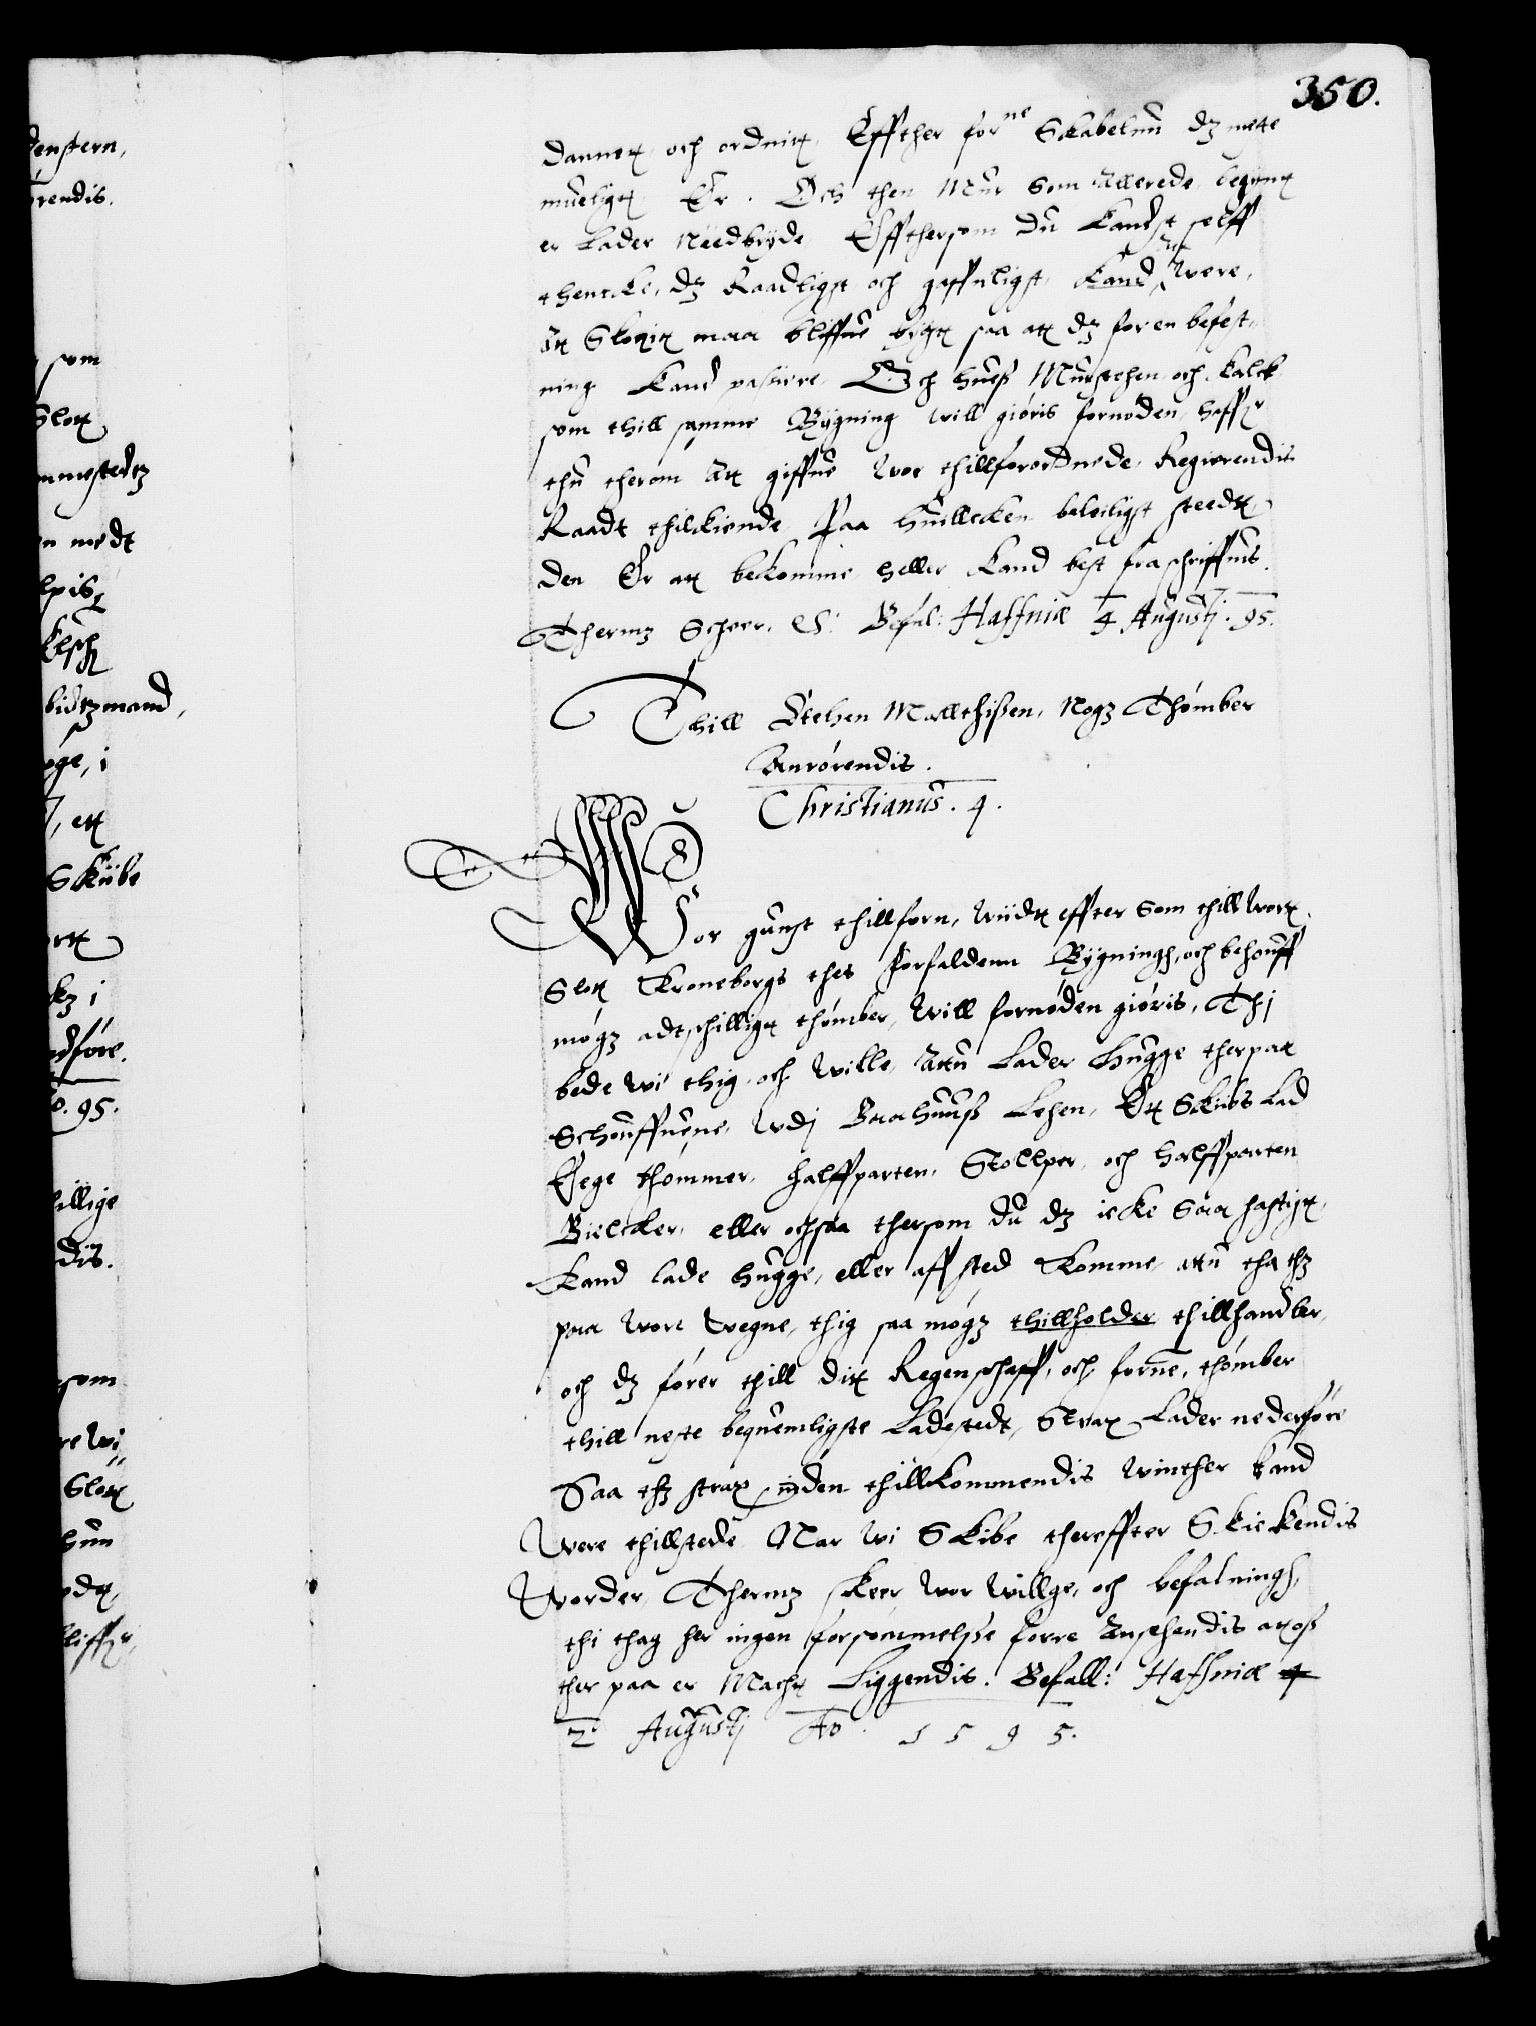 350.
dannet och ordnit, Effther forne Skabelun dz meste
mueligt Er. Och then Mur som Allerede begynt
er lader Needbryde Effthersom du Kandst selff
thencke, dz Raadligst och gaffnligst, Kand At Were,
At Slottit maa bliffue bygt saa att dz for en befest,,
ning Kand pasiere. Och huess Murstehen och Kalck
som thill samme Bygning will giøris fornøden, haffr
thu therom At giffue Wor thillforordnede, Regierendis
Raadt thilkiende Paa huillcken beleiligst steedt,
den Er att bekomme heller Kand best fraschriffuis.
Thermz Scheer. Befal: Haffniæ 4 Augustj. 95.
Thill Stehen Matthissen, Nogz Thømber
Anrørendis.
Christianus. 4.
Wor gunst thillforn, Wiidt effter som thill Wort
Slott Kroneborgs thes forfaldenn Bygningh, och behouff
møgz adtschilligt thømber, Will fornøden giøris, Thj
bede Wi thig, och Wille, Attu Lader Hugge therpaa
Schouffuene, Wdj Baahuuss Lehen, Et Skiibs Lad
Eege thømmer, halffparten, Stollper, och halffparten
Bielcker, eller ochsaa thersom du dz icke Saa hastigt,
Kand lade hugge, eller aff sted Komme, attu tha thz
paa Wore Wegne, thig saa møgz thillholder thillhandler,
och dz fører thill dit Regenschaff, och forne, thømber
thill neste bequemligste Ladestedt, Strax Lader nederføre
Saa thz strax inden thillkommendis Winther Kand
Were thillstede Nar Wi Skibe thereffter Skickendis
Worder, Thermz skeer Wor Willge, och befalningh,
thi thag her ingen forsømmelsse forre Ansehendis att oss
ther paa er Macht Liggendis. Befall: Haffniæ 4
2 Augustj Ao 1595.
denstern,
rendis.
som
Slott
mmestedtz
n medt
lpis
bidtzmand,
øge, i
, ett
Skiibe
ort
kz i
dføre.
o. 95.
illige
dis.
som
re Wi
Slott
hun
odt,
liffr,